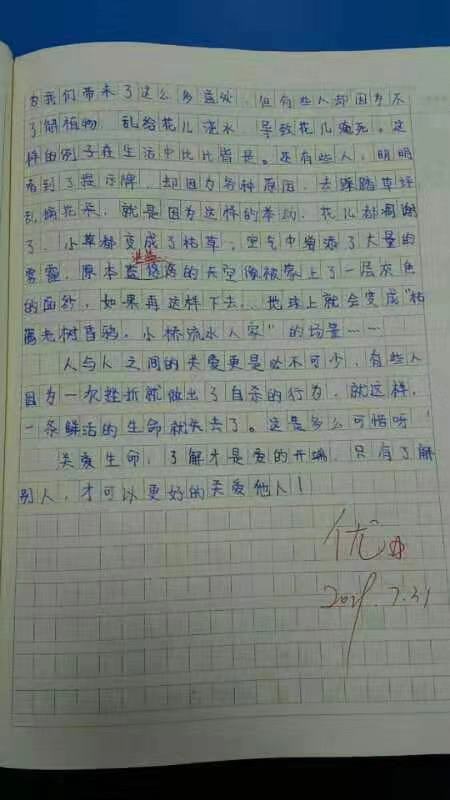 为我们带来了这么多益处,但有些人却因为不
了解植物,乱给花儿浇水,导致花儿淹死。这
样的例子在生活中比比皆是。还有些人,明明
看到了提示牌,却因为各种原因,去踩踏草坪
乱摘花朵,就是因为这样的举动,花儿都凋谢
了,小草都变成了枯草,空气中弥漫了大量的
雾霾,原本蓝
的天空像被蒙上了一层灰色
的面纱,如果再这样下去…地球上就会变成“枯
藤老树昏鸦,小桥流水人家”的场景……
人与人之间的关爱更是必不可少,有些人
因为一次挫折就做出了自杀的行为,就这样,
一条鲜活的生命就失去了。这是多么可惜呀!
关爱生命,了解才是爱的开端,只有了解
别人,才可以更好的关爱他人!
优
7.31